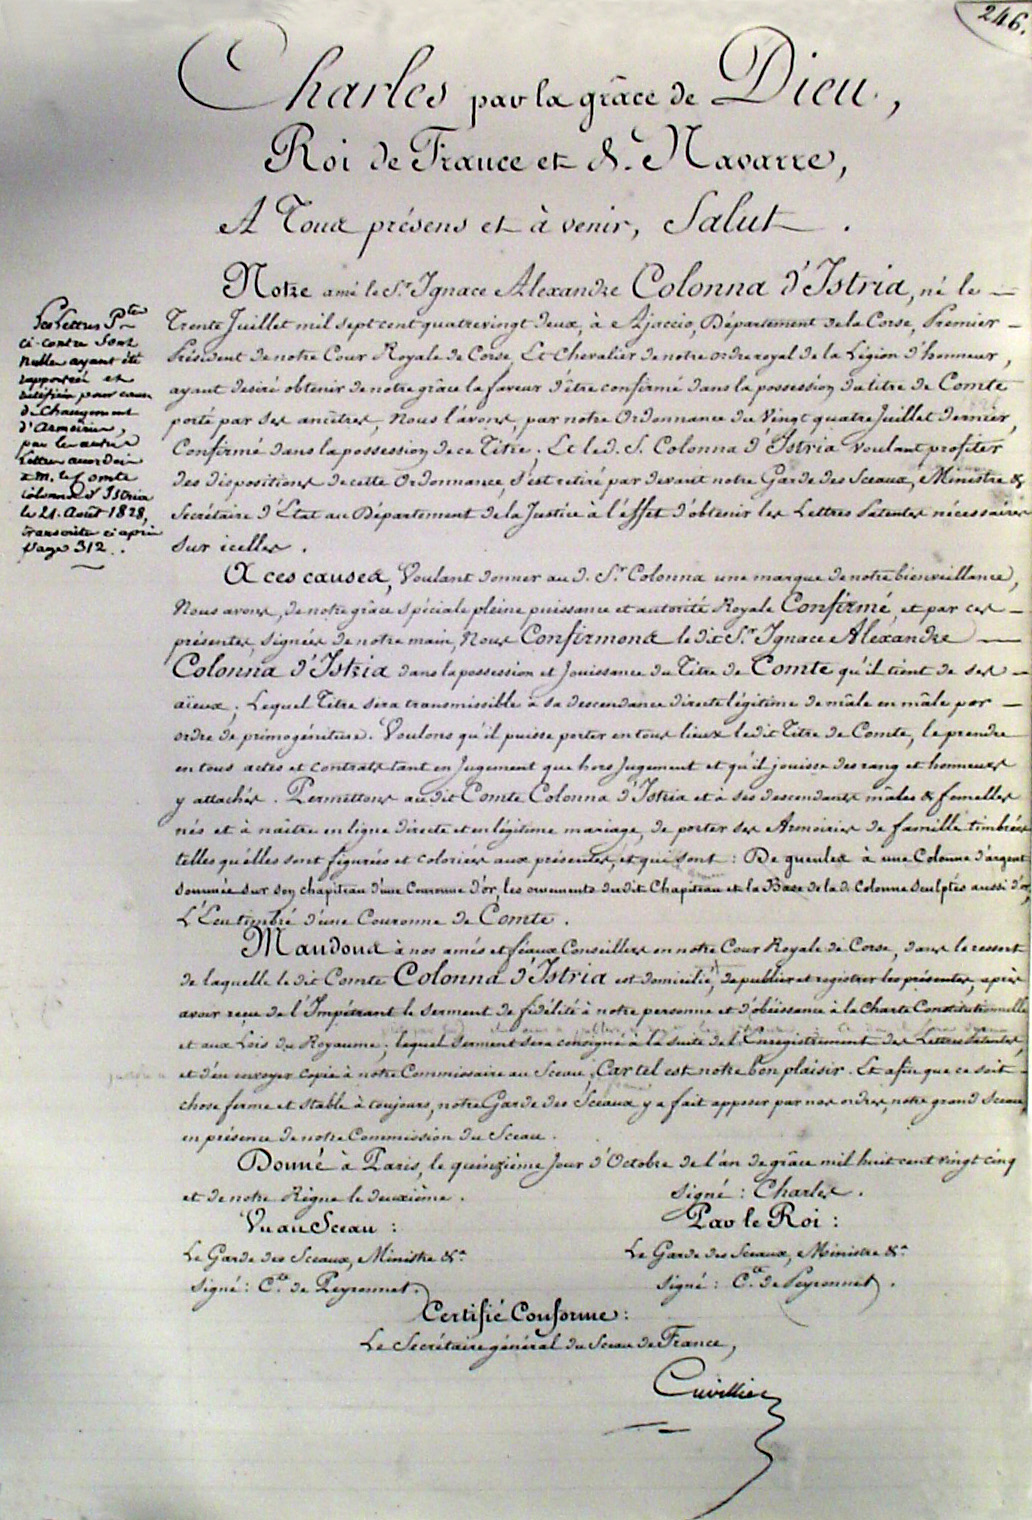 246.
Charles par la grâce de Dieu,
Roi de France et de Navarre,
A Tous présens et à venir, Salut.
Notre amé le Sr. Ignace Alexandre Colonna d'Istria, né le
Trente Juillet mil sept cent quatrevingt deux, à Ajaccio, Département de la Corse, Premier
Président de notre Cour Royale de Corse, Et Chevalier de notre ordre royal de la Légion d'honneur,
ayant désiré obtenir de notre grâce la faveur d'être confirmé dans la possession du titre de Comte
porté par ses ancêtres, Nous l'avons, par notre Ordonnance du Vingt quatre Juillet dernier,
Confirmé dans la possession de ce Titre; Et le d. S. Colonna d'Istria voulant profiter
des dispositions de cette Ordonnance, s'est retiré par devant notre Garde des Sceaux, Ministre &
Secrétaire d'Etat au Département de la Justice à l'effet d'obtenir les Lettres Patentes nécessaires
sur icelles.
A ces causes, Voulant donner au d. Sr Colonna une marque de notre bienveillance,
Nous avons, de notre grâce spéciale pleine puissance et autorité Royale Confirmé, et par ces
présentes, signées de notre main, Nous Confirmons le dit Sr. Ignace Alexandre
Colonna d'Istria dans la possession et Jouissance du Titre de Comte qu'il tient de ses
aïeux; Lequel Titre sera transmissible à sa descendance directe légitime de mâle en mâle par
ordre de primogéniture. Voulons qu'il puisse porter en tous lieux ledit Titre de Comte, le prendre
en tous actes et contrats tant en Jugement que hors Jugement et qu'il jouisse des rang et honneurs
y attachés. Permettons au dit Comte Colonna d'Istria et à ses descendants mâles & femelles
nés et à naître en ligne directe et en légitime mariage, de porter ses Armoiries de famille timbrées
telles qu'elles sont figurées et coloriées aux présentes, et qui sont: De gueules à une Colonne d'argent
sommée sur son chapiteau d'une Couronne d'or, les ornements dudit Chapiteau et la Base de la d. Colonne sculptés aussi d'or,
L'Ecu timbré d'une Couronne de Comte.
Mandons à nos amés et féaux Conseillers en notre Cour Royale de Corse, dans le ressort
de laquelle le dit Comte Colonna d'Istria est domicilié, de publier et registrer les présentes, après
avoir reçu de l'Impétrant le serment de fidélité à notre personne et d'obéissance à la Charte Constitutionnelle
et aux Lois du Royaume; lequel serment sera consigné à la suite de l'Enregistrement des Lettres Patentes,
et d'en envoyer copie à notre Commissaire au Sceau; Car tel est notre bon plaisir. Et afin que ce soit
chose ferme et stable à toujours, notre Garde des Sceaux y a fait apposer par nos ordres, notre grand Sceau,
en présence de notre Commission du Sceau.
Donné à Paris, le quinzième Jour d'Octobre de l'an de grâce mil huit cent vingt cinq
et de notre Règne le deuxième.
signé: Charles.
Vu au Sceau:
Par le Roi:
Le Garde des Sceaux, Ministre &a.
Le Garde des Sceaux, Ministre &a.
signé: Cte. de Peyronnet.
signé: Cte. de Peyronnet.
Certifié Conforme:
Le Secrétaire général du Sceau de France,
Cuvillier
Les Lettres Ptes
ci-contre sont
nulles ayant été
rapportées et
pour cause
de Changement
d'Armoiries,
par les autres
Lettres accordées
à M. le Comte
Colonna d'Istria
le 21. Août 1828,
transcrites ci après
page 312.